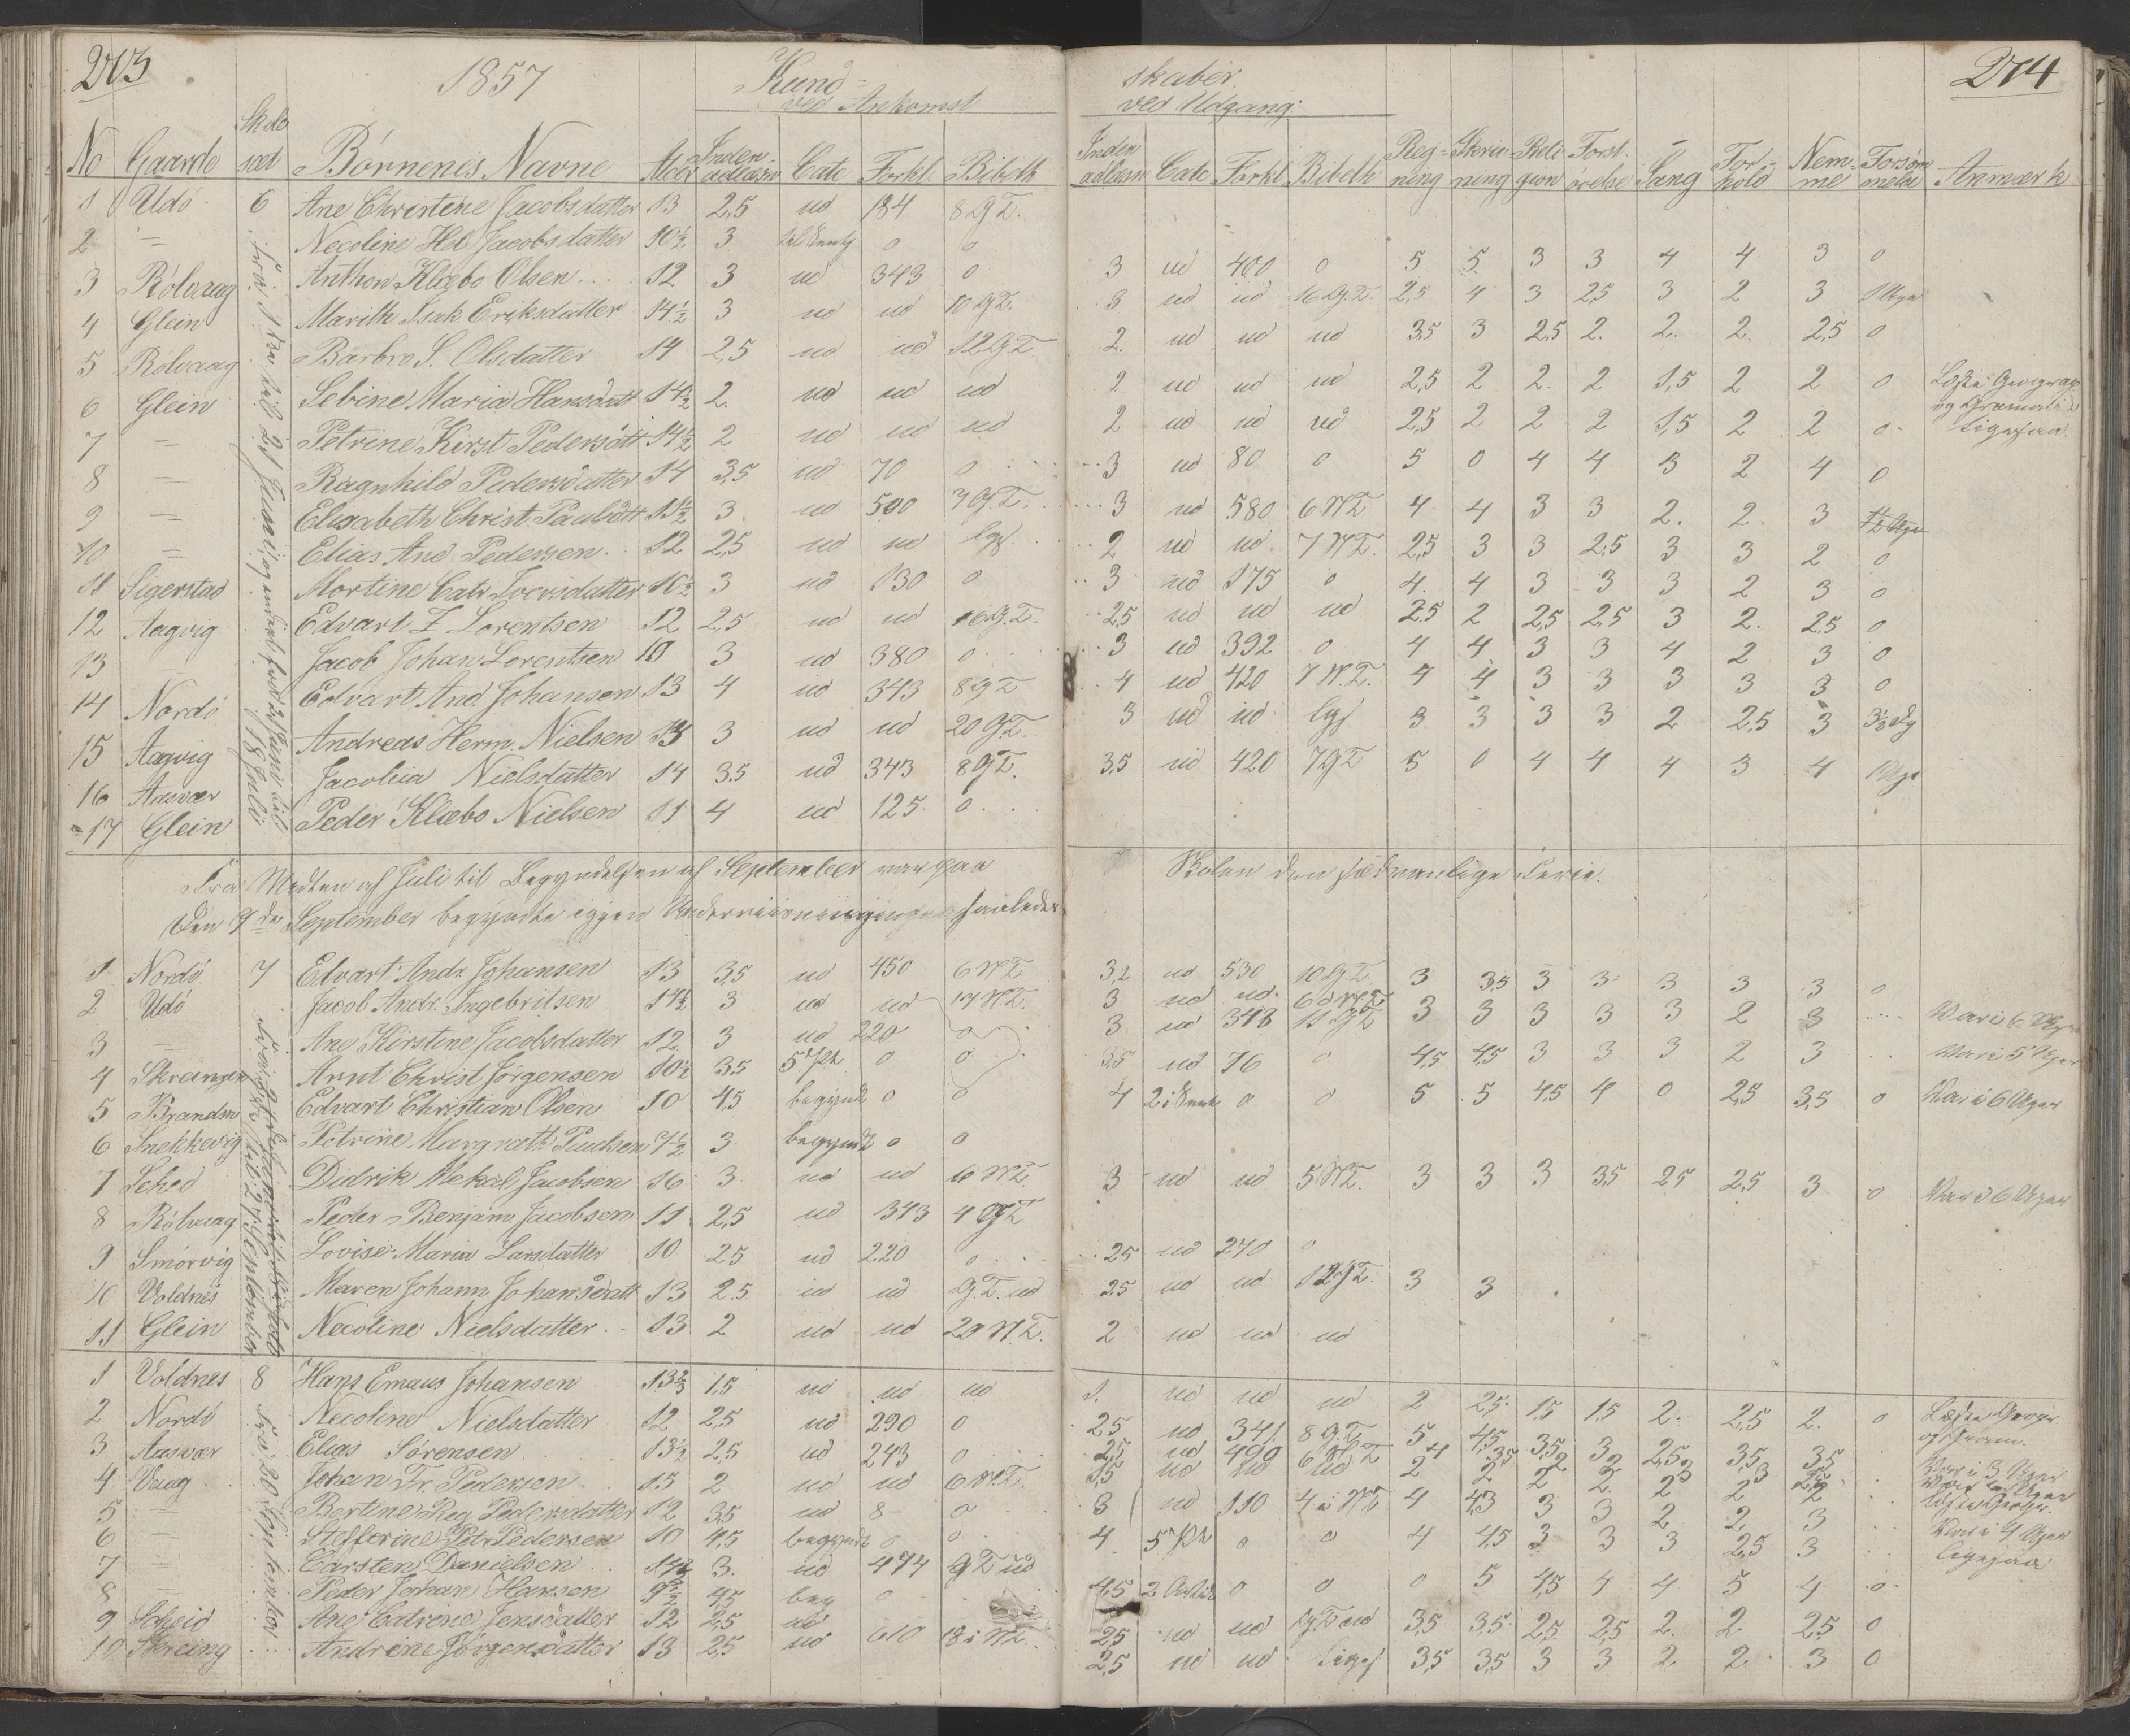 273
1857
Kund-
ved Ankomst
skaber.
ved Udgang.
274
No Gaarde Skole sæt Börnenes Navne Alder Inden-adlæsn Cate Forkl. Bibelh Inden adlæsn Cate Forkl Bibelh Reg-ning Skriv-ning Reli gion Forst. övelse Sang For hold Nem-me Forsöm melse Anmærk
1 Udö 6 Ane Christine Jacobsdatter 13 2,5 ud 184 8 G.T.
2 = Necoline Hel. Jacobsdatter 10½ 3 0 0
3 Rölvaag Anthon Klæbo Olsen 12 3 ud 343 0 3 ud 400 0 5 5 3 3 4 4 3 0
4 Glein Marith Isak Eriksdatter 14½ 3 ud ud 10 G.T. 3 ud ud 16 G.T. 2,5 4 3 2,5 3 2 3 1 Uge
5 Rölvaag Barbro S. Olsdatter 14 2,5 ud ud 12 G.T. 2. ud ud ud 3,5 3 2,5 2. 2. 2. 2,5 0
6 Glein Sebine Maria Hansdatt 14½ 2. ud ud ud 2 ud ud ud 2,5 2 2. 2 1,5 2 2 0 Læste Geogra
og Gramati
7 = Petrine Kirst. Pedersdatt 14½ 2 ud ud ud 2 ud ud ud 2,5 2 2 2 1,5 2 2 0 ligesaa.
8 = Ragnhild Pedersdatter 14 3,5 ud 70 0 3 ud 80 0 5 0 4 4 3 2 4 0
9 = Elisabeth Christ. Paulsdtt 11½ 3 ud 500 7 G.T. 3 ud 580 6 N.T. 4 4 3 3 2. 2. 3
10 = Elias And. Pedersen 12 2,5 ud ud 2 ud ud 7 N.T. 2,5 3 3 2,5 3 3 2 0
11 Sigerstad Mortine Catr. 10½ 3 ud 130 0 3 ud 175 0 4. 4 3 3 3 2 3 0
12 Aagvig Edvart Z Lorentsen 12 2,5 ud ud 16 G.T. 2,5 ud ud ud 2,5 2 2,5 2,5 3 2. 2,5 0
13 Jacob Johan Lorentsen 10 3 ud 380 0 3 ud 392 0 4 4 3 3 4 2 3 0
14 Nordö Edvart And. Johansen 13 4 ud 343 8 G.T. 4 ud 420 7 N.T. 4 4 3 3 3 3 3 0
15 Aagvig Andreas Herm. Nielsen 13 3 ud ud 20 G.T. 3 ud ud 3 3 3 3 2 2,5 3
16 Aasvær Jacobia Nielsdatter 14 3,5 ud 343 8 G.T. 3,5 ud 420 7 G.T 5 0 4 4 4 3 4 1 Uge
17 Glein Peder Klæbo Nielsen 11 4 ud 125 0
Fra Midten af Juli til Begyndelsen af September var paa Skolen den sædvanlige Ferie.
Den 9de September begyndte igjen Underviisningen saaledes
1 Nordö 7 Edvart Andr Johansen 13 3,5 ud 450 6 N.T. 3,2 ud 530 10 G.T. 3 3,5 3 3 3 3 3 0
2 Udö Jacob Andr. Ingebritsen 14½ 3 ud ud 14 N.T. 3 ud ud 3 3 3 3 3 2 3 Var i 6 Uger
3 = Ane Kirstine Jacobsdatter 12 3 ud 220 0 3 ud 318 11 G.T Var i 5 Uger
4 Arnt Christ Jörgensen 10½ 3,5 5 Pt 0 0 3,5 ud 76 0 4,5 4,5 3 3 3 2 3
5 Brandsm Edvart Christian Olsen 10 4,5 begyndt 0 0 4 0 0 5 5 4,5 4 0 2,5 3,5 0 Var i 6 Uger
6 Snekkevig Petrine Margrath Paulsen 7½ 3 begyndt 0 0
7 Sched Didrik Mekal Jacobsen 16 3 ud ud 6 N.T. 3 ud ud 5 N.T. 3 3 3 3,5 2,5 2,5 3 0 Var i 6 Uger
8 Rölvaag Peder Benjam Jacobsen 11 2,5 ud 343 4 G.T
9 Smörvig Lovise Maria Larsdatter 10 2,5 ud 220 0 2,5 ud 270 0
10 Voldnes Maren Johann Johansdatt 13 2,5 ud ud G.T. ud 2,5 ud ud 12 G.T. 3 3
11 Glein Necoline Nielsdatter 13 2 ud ud 20 N.T. 2 ud ud ud
1 Voldnes 8 Hans Emaus Johansen 13 1,5 ud ud ud 1. ud ud ud 2 2,5 1,5 1,5 2. 2,5 2. 0 Læste Geogr.
og Gram.
2 Nordö Necoline Nielsdatter 12 2,5 ud 290 0 2,5 ud 341 8 G.T 5 4,5 3,5 3 2,5 3,5 3,5 Var i 3 Uger
3 Aasvær Elias Sörensen 13½ 2,5 ud 243 0 2,5 ud 499
4 Vaag Johan Fr. Pedersen 15 2 ud ud 6 N.T. 1,5 ud ud ud 2 2 2 2 2 2 2 Læste Geogr.
5 = Bertine Reg Pedersdatter 12 3,5 ud 8 0 3 ud 110 4 i N.T 4 4,3 3 3 2 2 3 Var i 4 Uger
6 = Stefferine Petr Pedersen 10 4,5 begyndt 0 0 4 5 Pt 0 0 4 4,5 3 3 3 2,5 3 ligesaa
7 = Carsten Danielsen 3. ud 474 G.T ud
8 = Peder Johan Hansen 9½ 4,5 beg 0 4,5 0 0 0 5 4,5 4 4 5 4 0
9 Scheid Ane Catrene Jensdatter 12 2,5 ud 2,5 ud ud G.T ud 3,5 3,5 2,5 2,5 2. 2. 2,5 0
10 Skreing Andrine Jörgensdatter 13 2,5 ud 610 18 i N.T. 2,5 ud ud 3,5 3,5 3 3 2 2 3 0